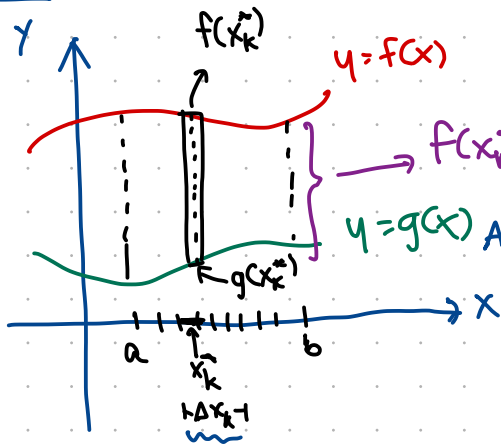 Y
f(x*k)
y=f(x)
f(x
y=g(x) A
g(x*k)
X
a b
x*k
Δxk